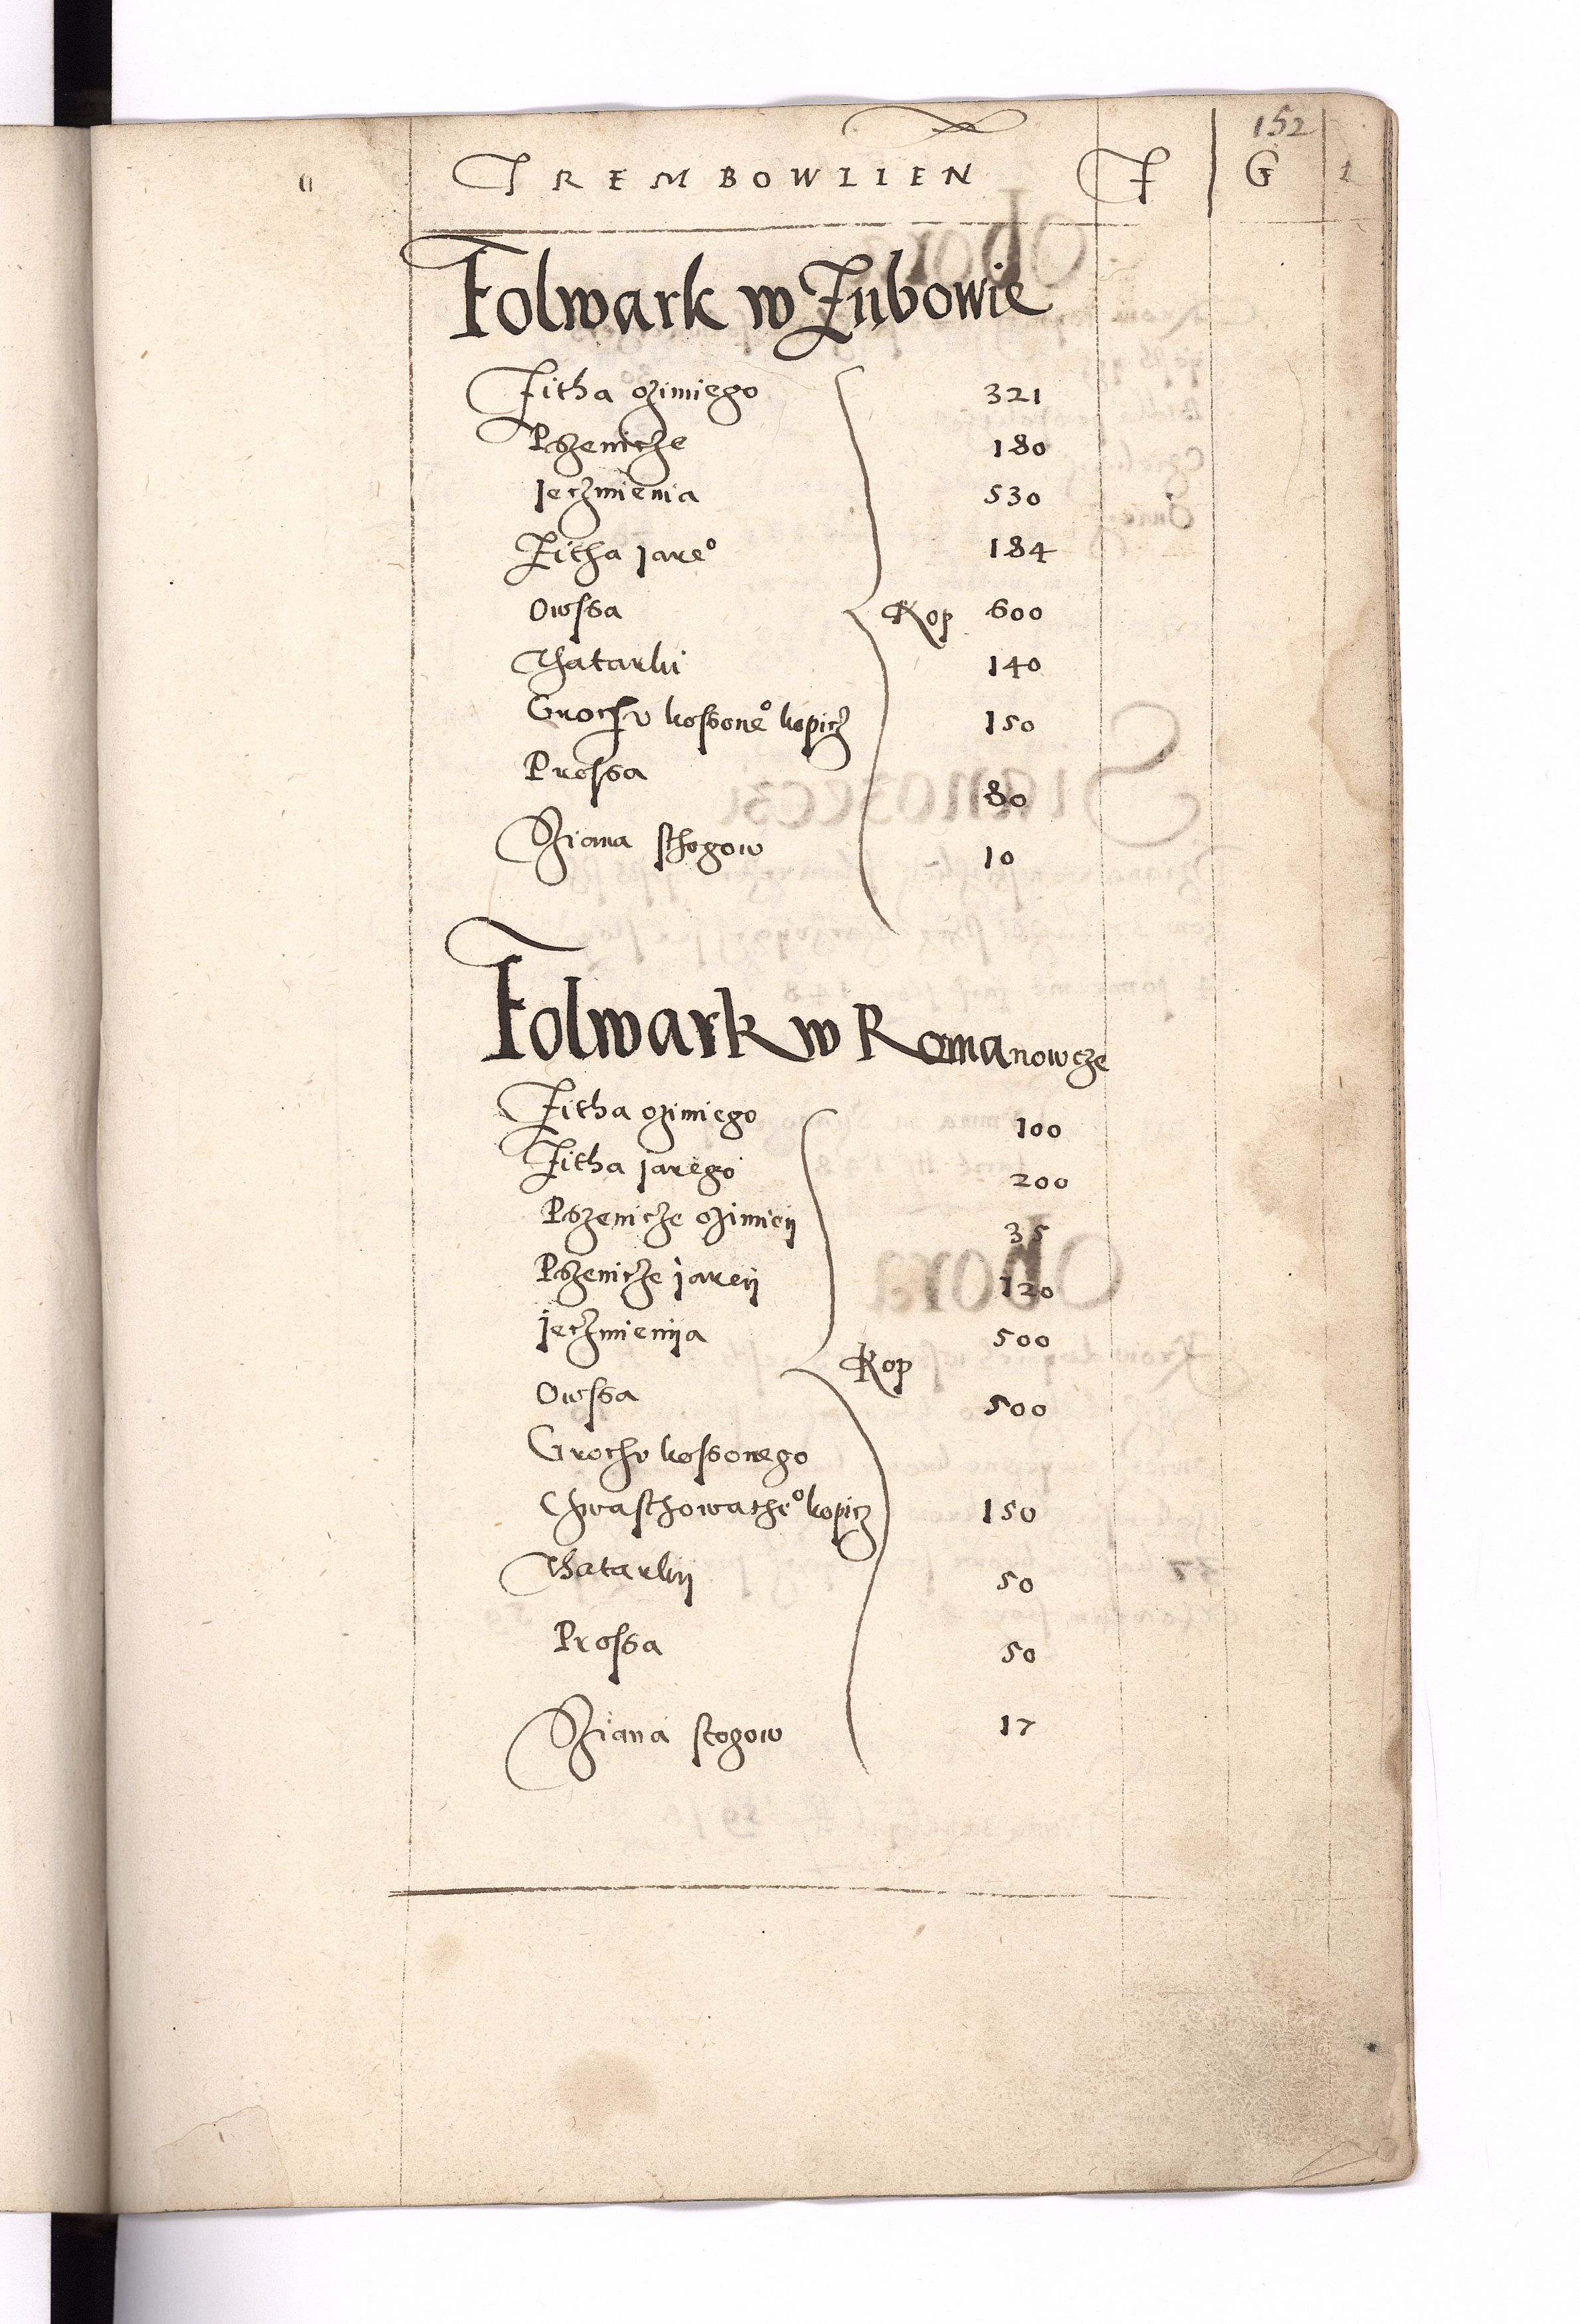 152
TREMBOWLIEN F G
Folwark w Zubowie
Zitha ozimiego 321
Pszenicze 180
Jeczmienia 530
Zitha jare° 184
Owssa Kop 600
Thatarki 140
Grochv kossone° kopicz 150
Prossa 80
Siana sthogow 10
Folwark w Romanowcze
Zitha ozimiego 100
Zitha jarego 200
Pszenicze ozimiey 35
Pszenicze jarey 120
Jeczmienija 500
Kop
Owssa 500
Grochv kossonego
Chwasthowathe° kopicz 150
Thatarkij 50
Prossa 50
Siana stogow 17